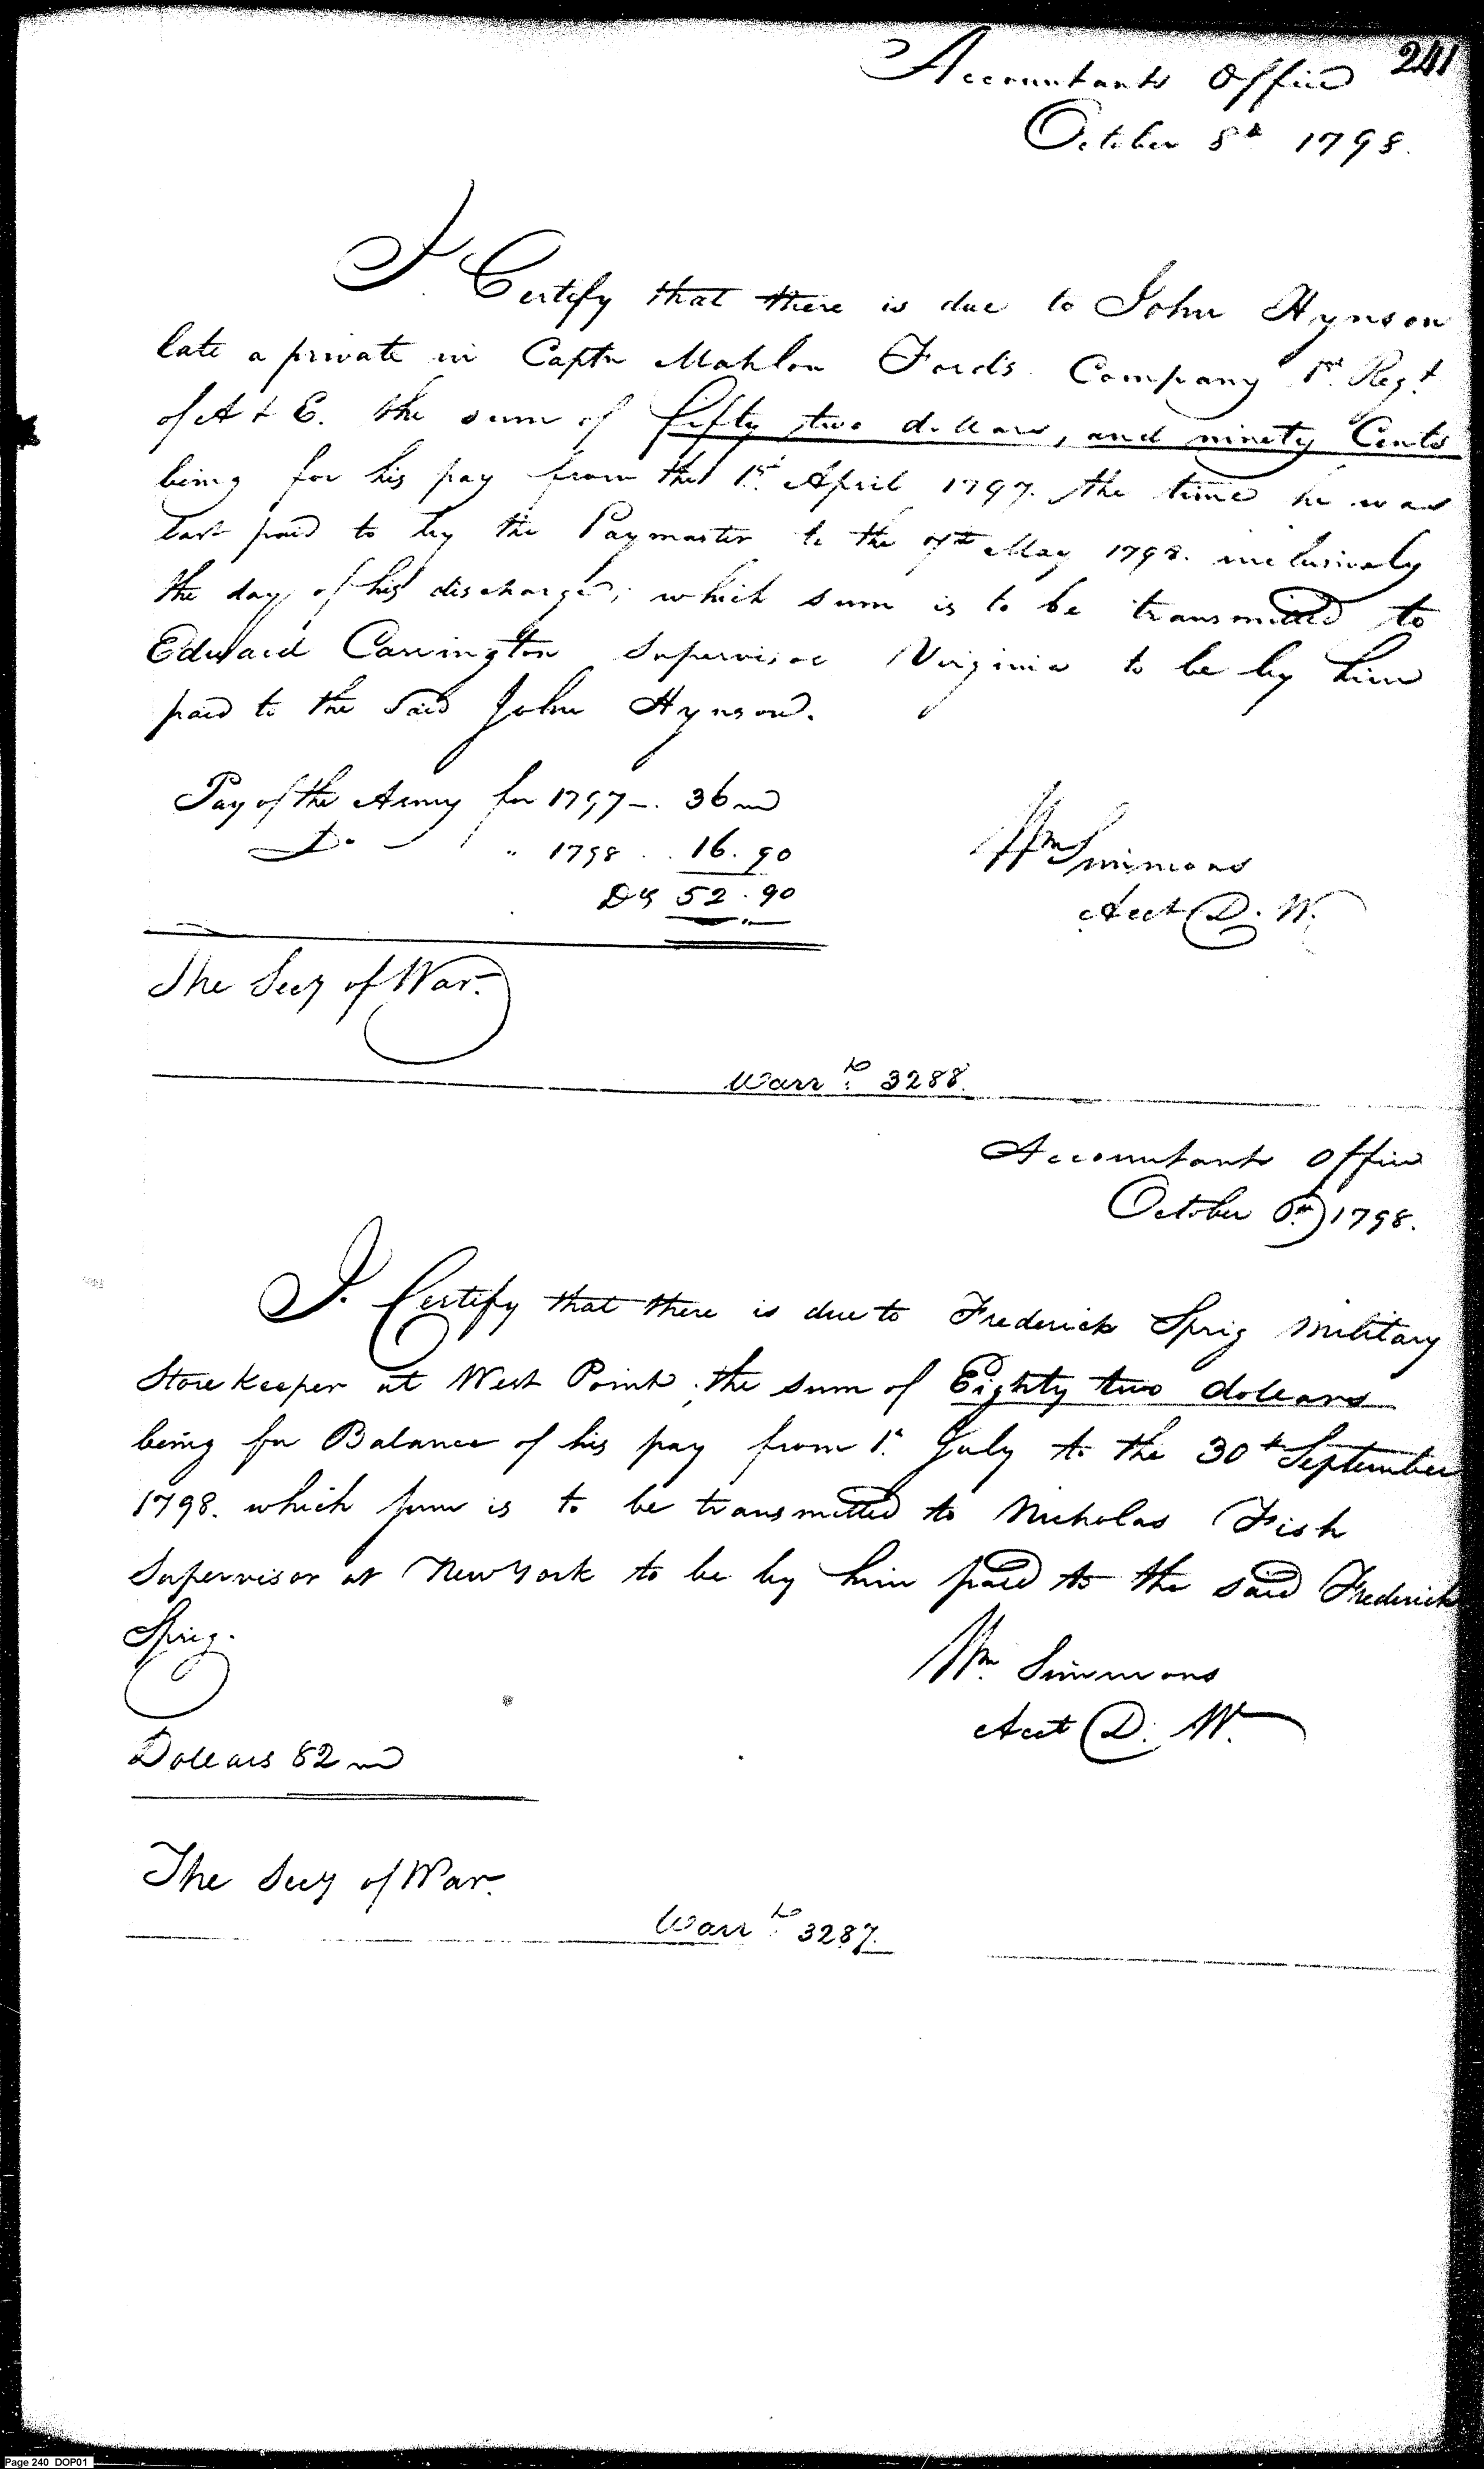 241
Accountants Office
October 8th 1798.
I Certify that there is due to John Hynson
late a private in Captn Mahlon Ford's Company 1st Regt
of A & E. the sum of fifty two dollars, and ninety Cents
being for his pay from the 1st April 1797. the time he was
last paid to by the Paymaster to the 7th May 1798. inclusively
the day of his discharge; which sum is to be transmitted to
Edward Carrington Supervisor Virginia to be by him
paid to the Said John Hynson.
Pay of the Army for 1797 - . 36
Do " 1798 . . 16.90
Ds 52.90
Wm Simmons
Acct D. W.
The Secy of War.
Warr to 3288.
Accountants Office
October 1798.
I. Certify that there is due to Frederick Sprig Military
Store Keeper at West Point, the sum of Eighty two dollars
being for Balance of his pay from 1st July to the 30th September
1798. which sum is to be transmitted to Nicholas Fish
Supervisor at New York to be by him paid to the said Frederick
Sprig.
Wm Simmons
Acct D. W.
Dollars 82
The Secy of War.
Warr to 3287.
Page 240 DOP01